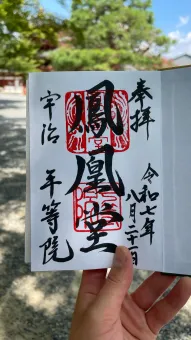 奉拝
令和七年
八月二十一日
鳳凰堂
宇治 平等院